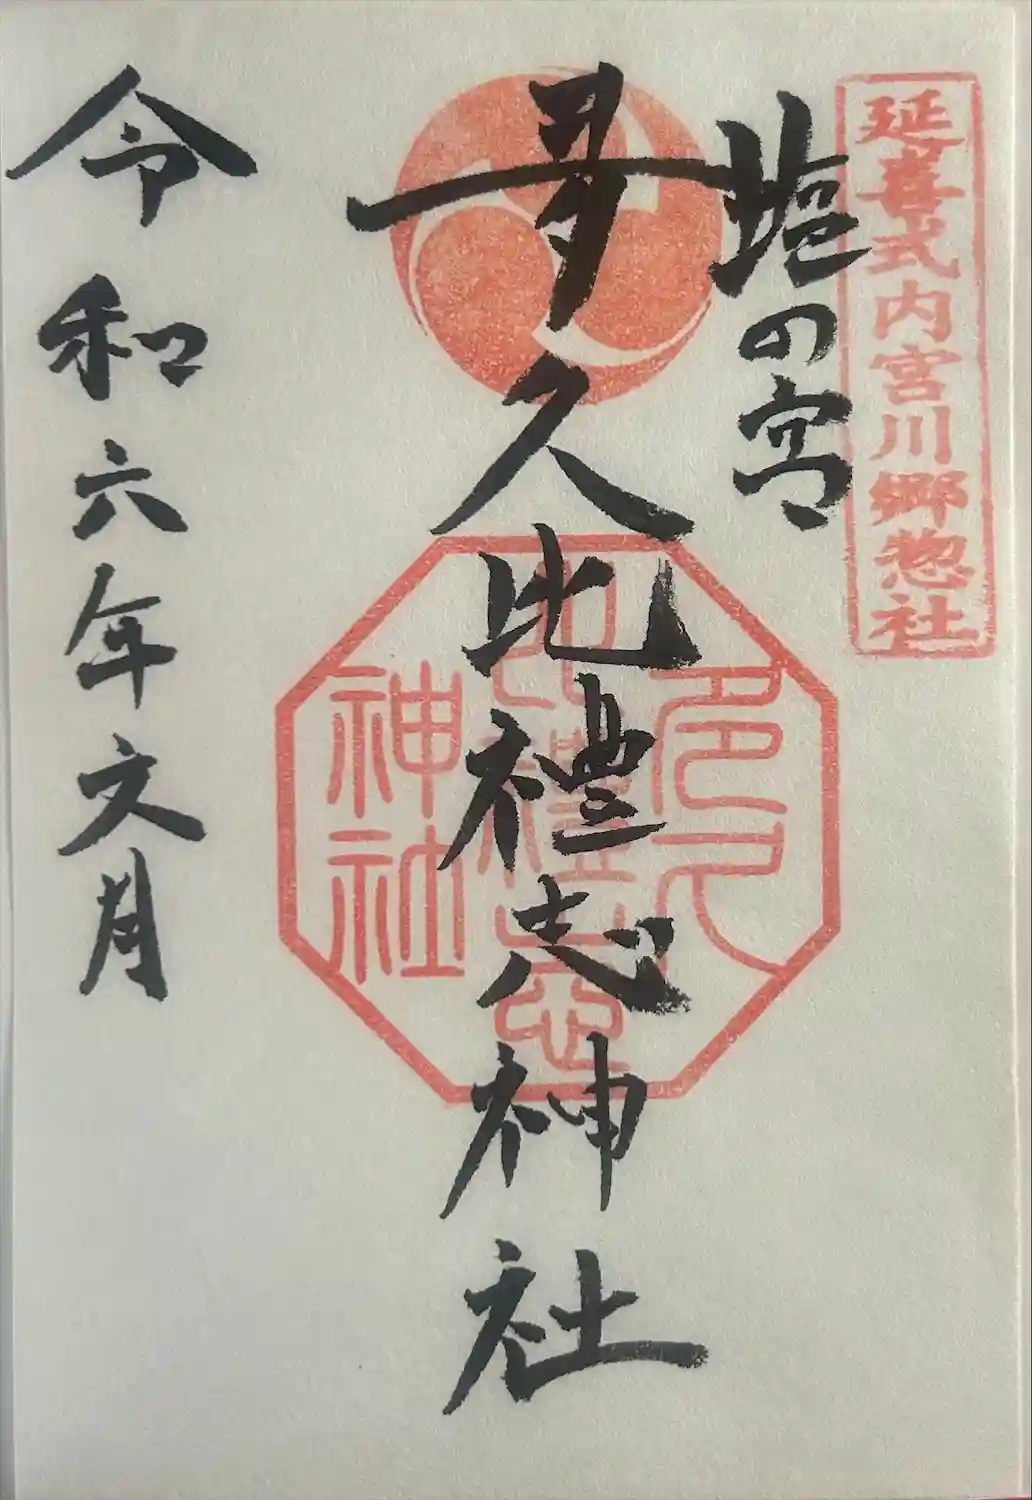 延喜式内宮川郷惣社
塩の宮
夛久比禮志神社
多久
比禮志
神社
令和六年文月